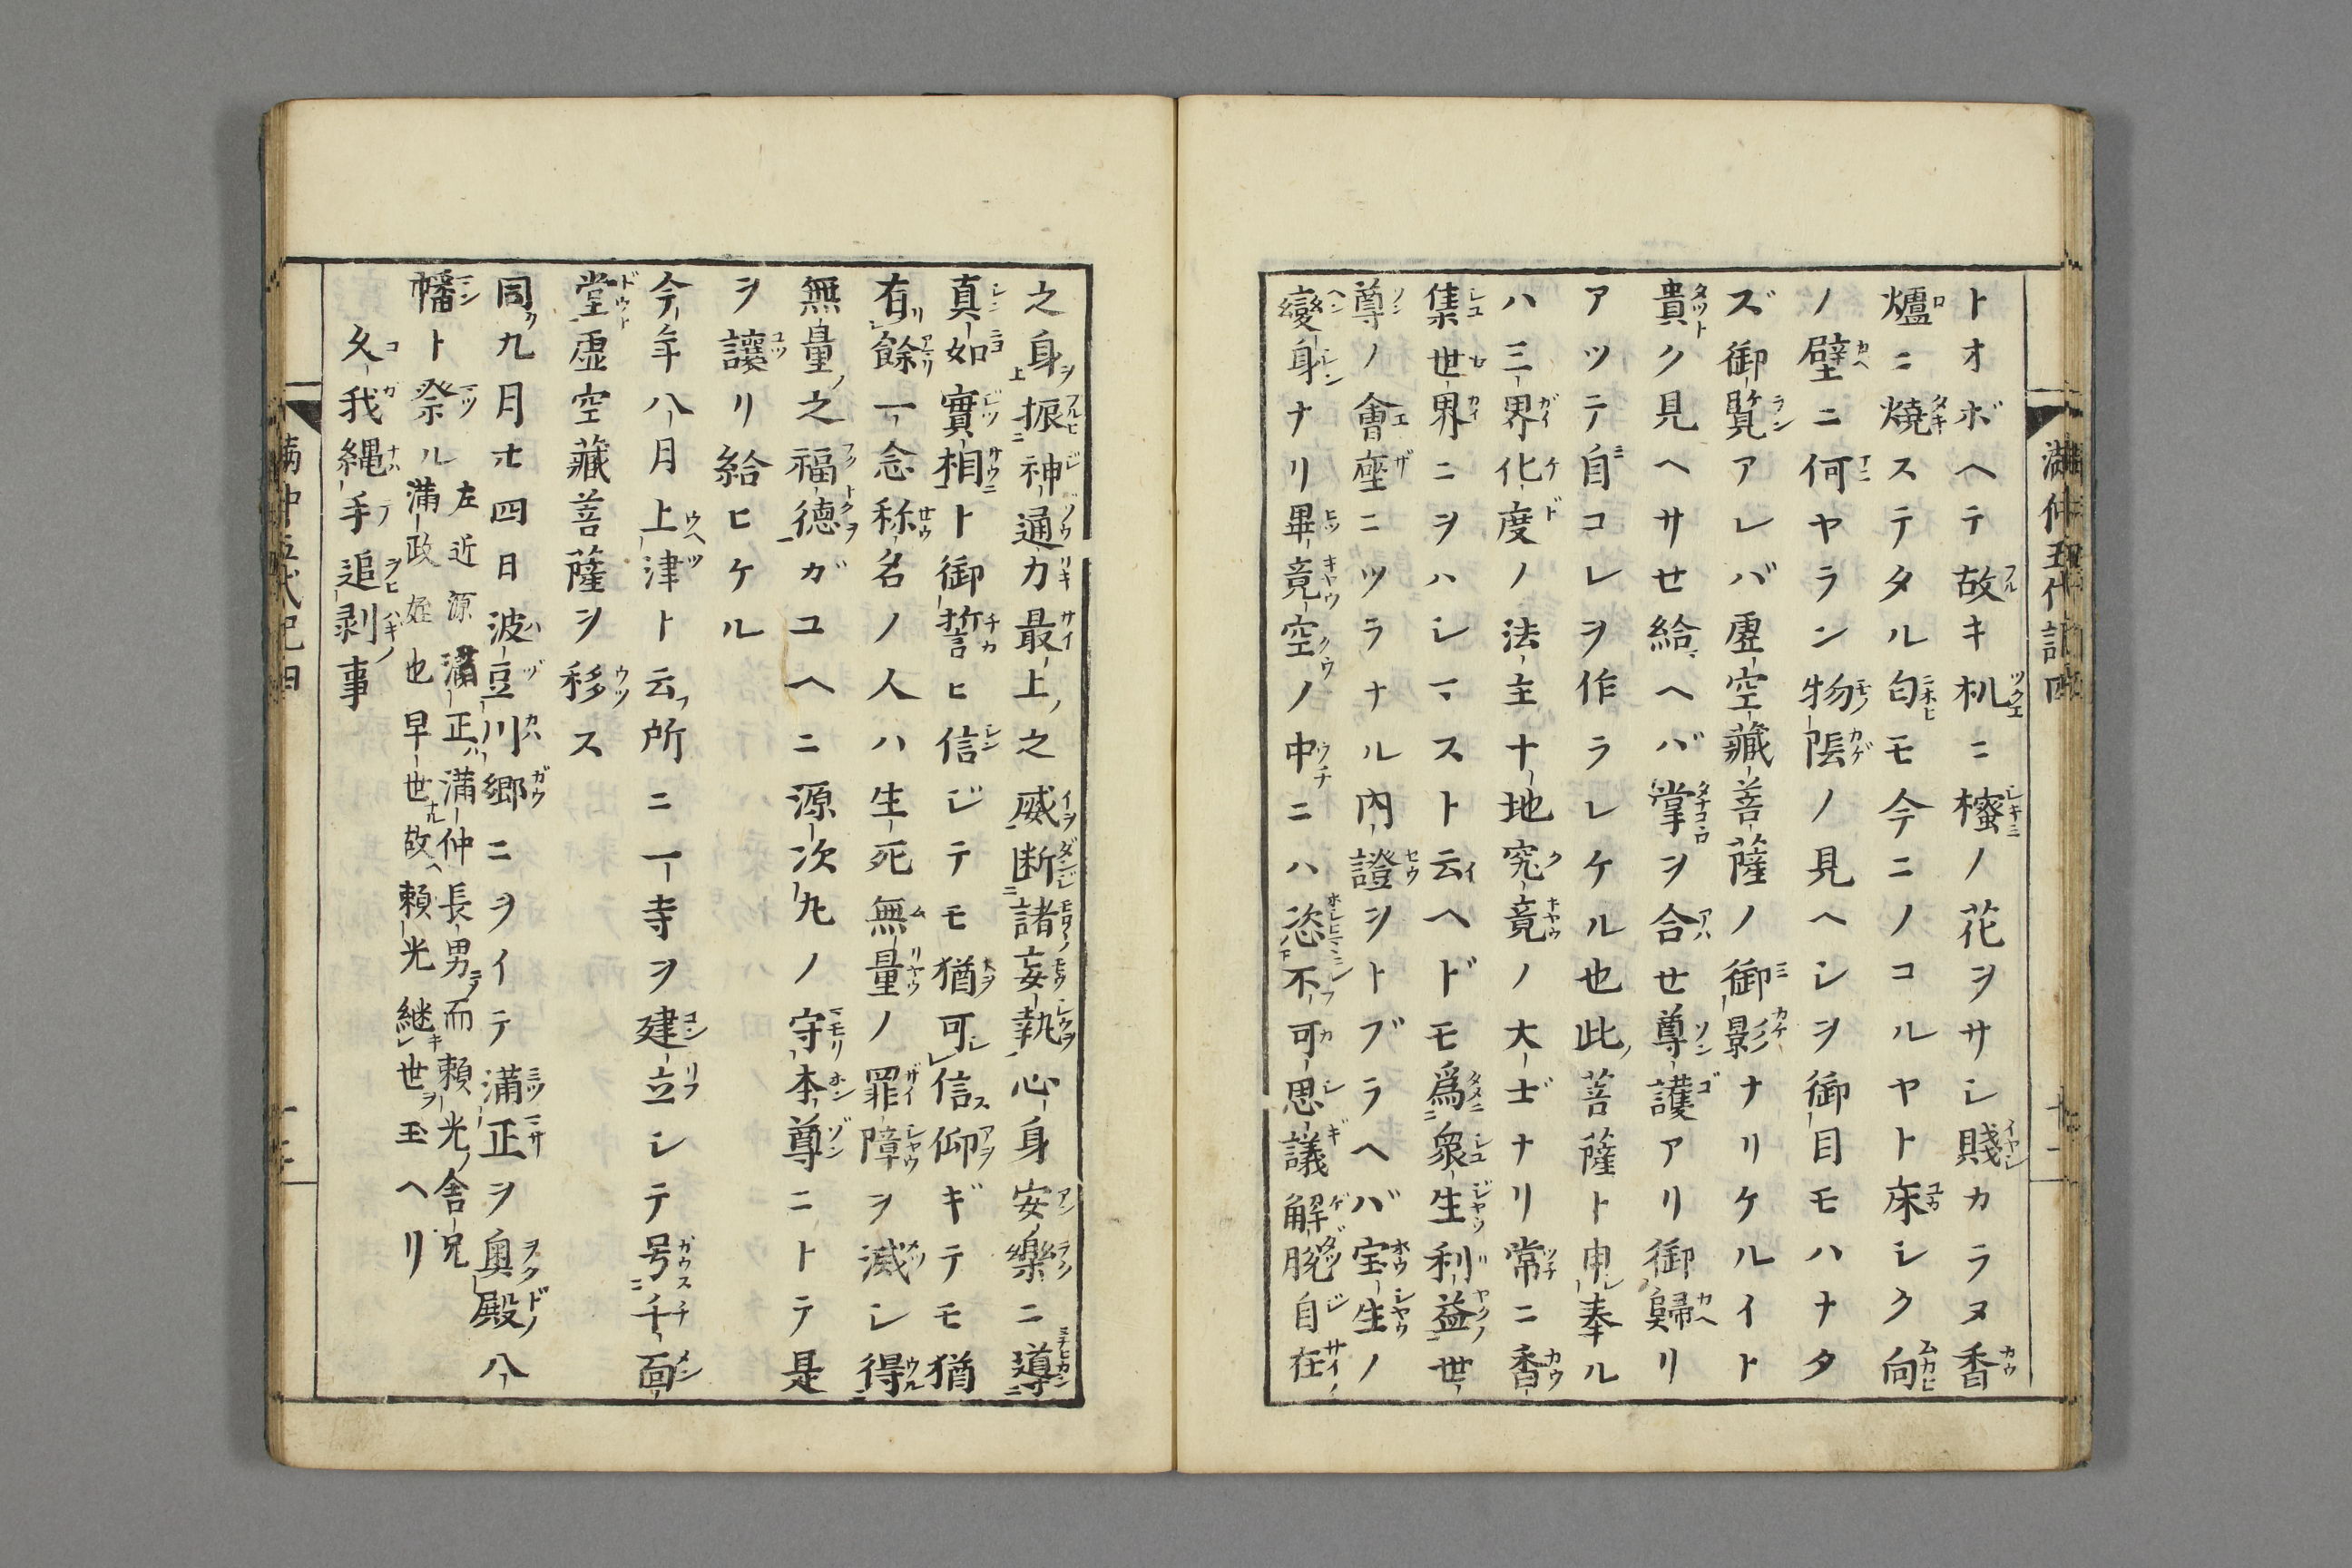 トオボヘテ故キ机ニ樒ノ花ヲサシ賤カラヌ香
爐ニ燒ステタル匂モ今ニノコルヤト床シク向
ノ壁ニ何ヤラン物陰ノ見ヘシヲ御目モハナタ
ズ御覽アレバ虚空藏菩薩ノ御影ナリケルイト
貴ク見ヘサせ給ヘバ掌ヲ合せ尊護アリ御歸リ
アツテ自コレヲ作ラレケル也此菩薩ト申奉ル
ハ三界化度ノ法主十地究竟ノ大士ナリ常ニ香
集世界ニヲハシマスト云ヘドモ爲衆生利益世
尊ノ會座ニツラナル内證ヲトブラヘバ宝生ノ
變身ナリ畢竟空ノ中ニハ恣不可思議解脱自在
之身振神通力最上之威断諸妄執心身安樂ニ導
真如實相ト御誓ヒ信ジテモ猶可信仰ギテモ猶
有餘一念称名ノ人ハ生死無量ノ罪障ヲ滅シ得
無量之福德ガユヘニ源次丸ノ守本尊ニトテ是
ヲ讓リ給ヒケル
今年八月上津ト云所ニ一寺ヲ建立シテ号千面
堂虚空藏菩薩ヲ移ス
同九月廿四日波豆川郷ニヲイテ満正ヲ奥殿八
幡ト祭ル
左近源満正ハ満仲長男而頼光ノ舎兄
満政姪也早世故頼光継世玉ヘリ
久我縄手追剥事
満仲五代記四